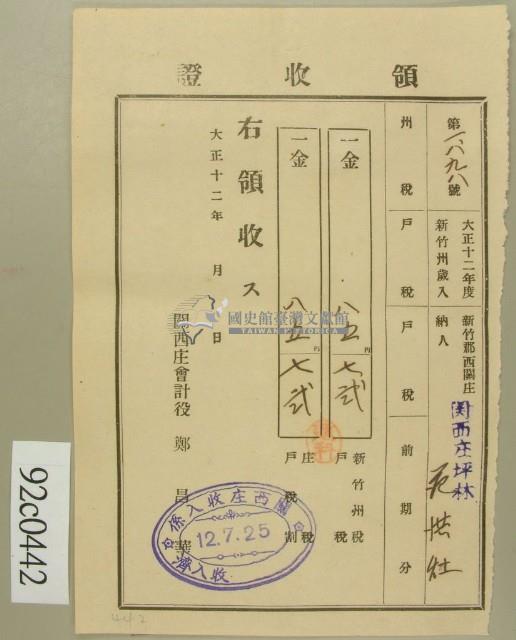 領收證
第一八九八號
大正十二年度
新竹州歲入
新竹郡西關庄
関西庄坪林
納人
范洪灶
州稅戶稅戶稅前期分
一金 八五円七弐
新竹州稅
戶稅
一金 八五円七弐
庄稅
戶稅割
右領收ス
大正十二年 月 日
関西庄會計役 鄭昌華
關西庄收入係
12.7.25
收入濟
國史館臺灣文獻館
TAIWAN HISTORICA
92c0442
442